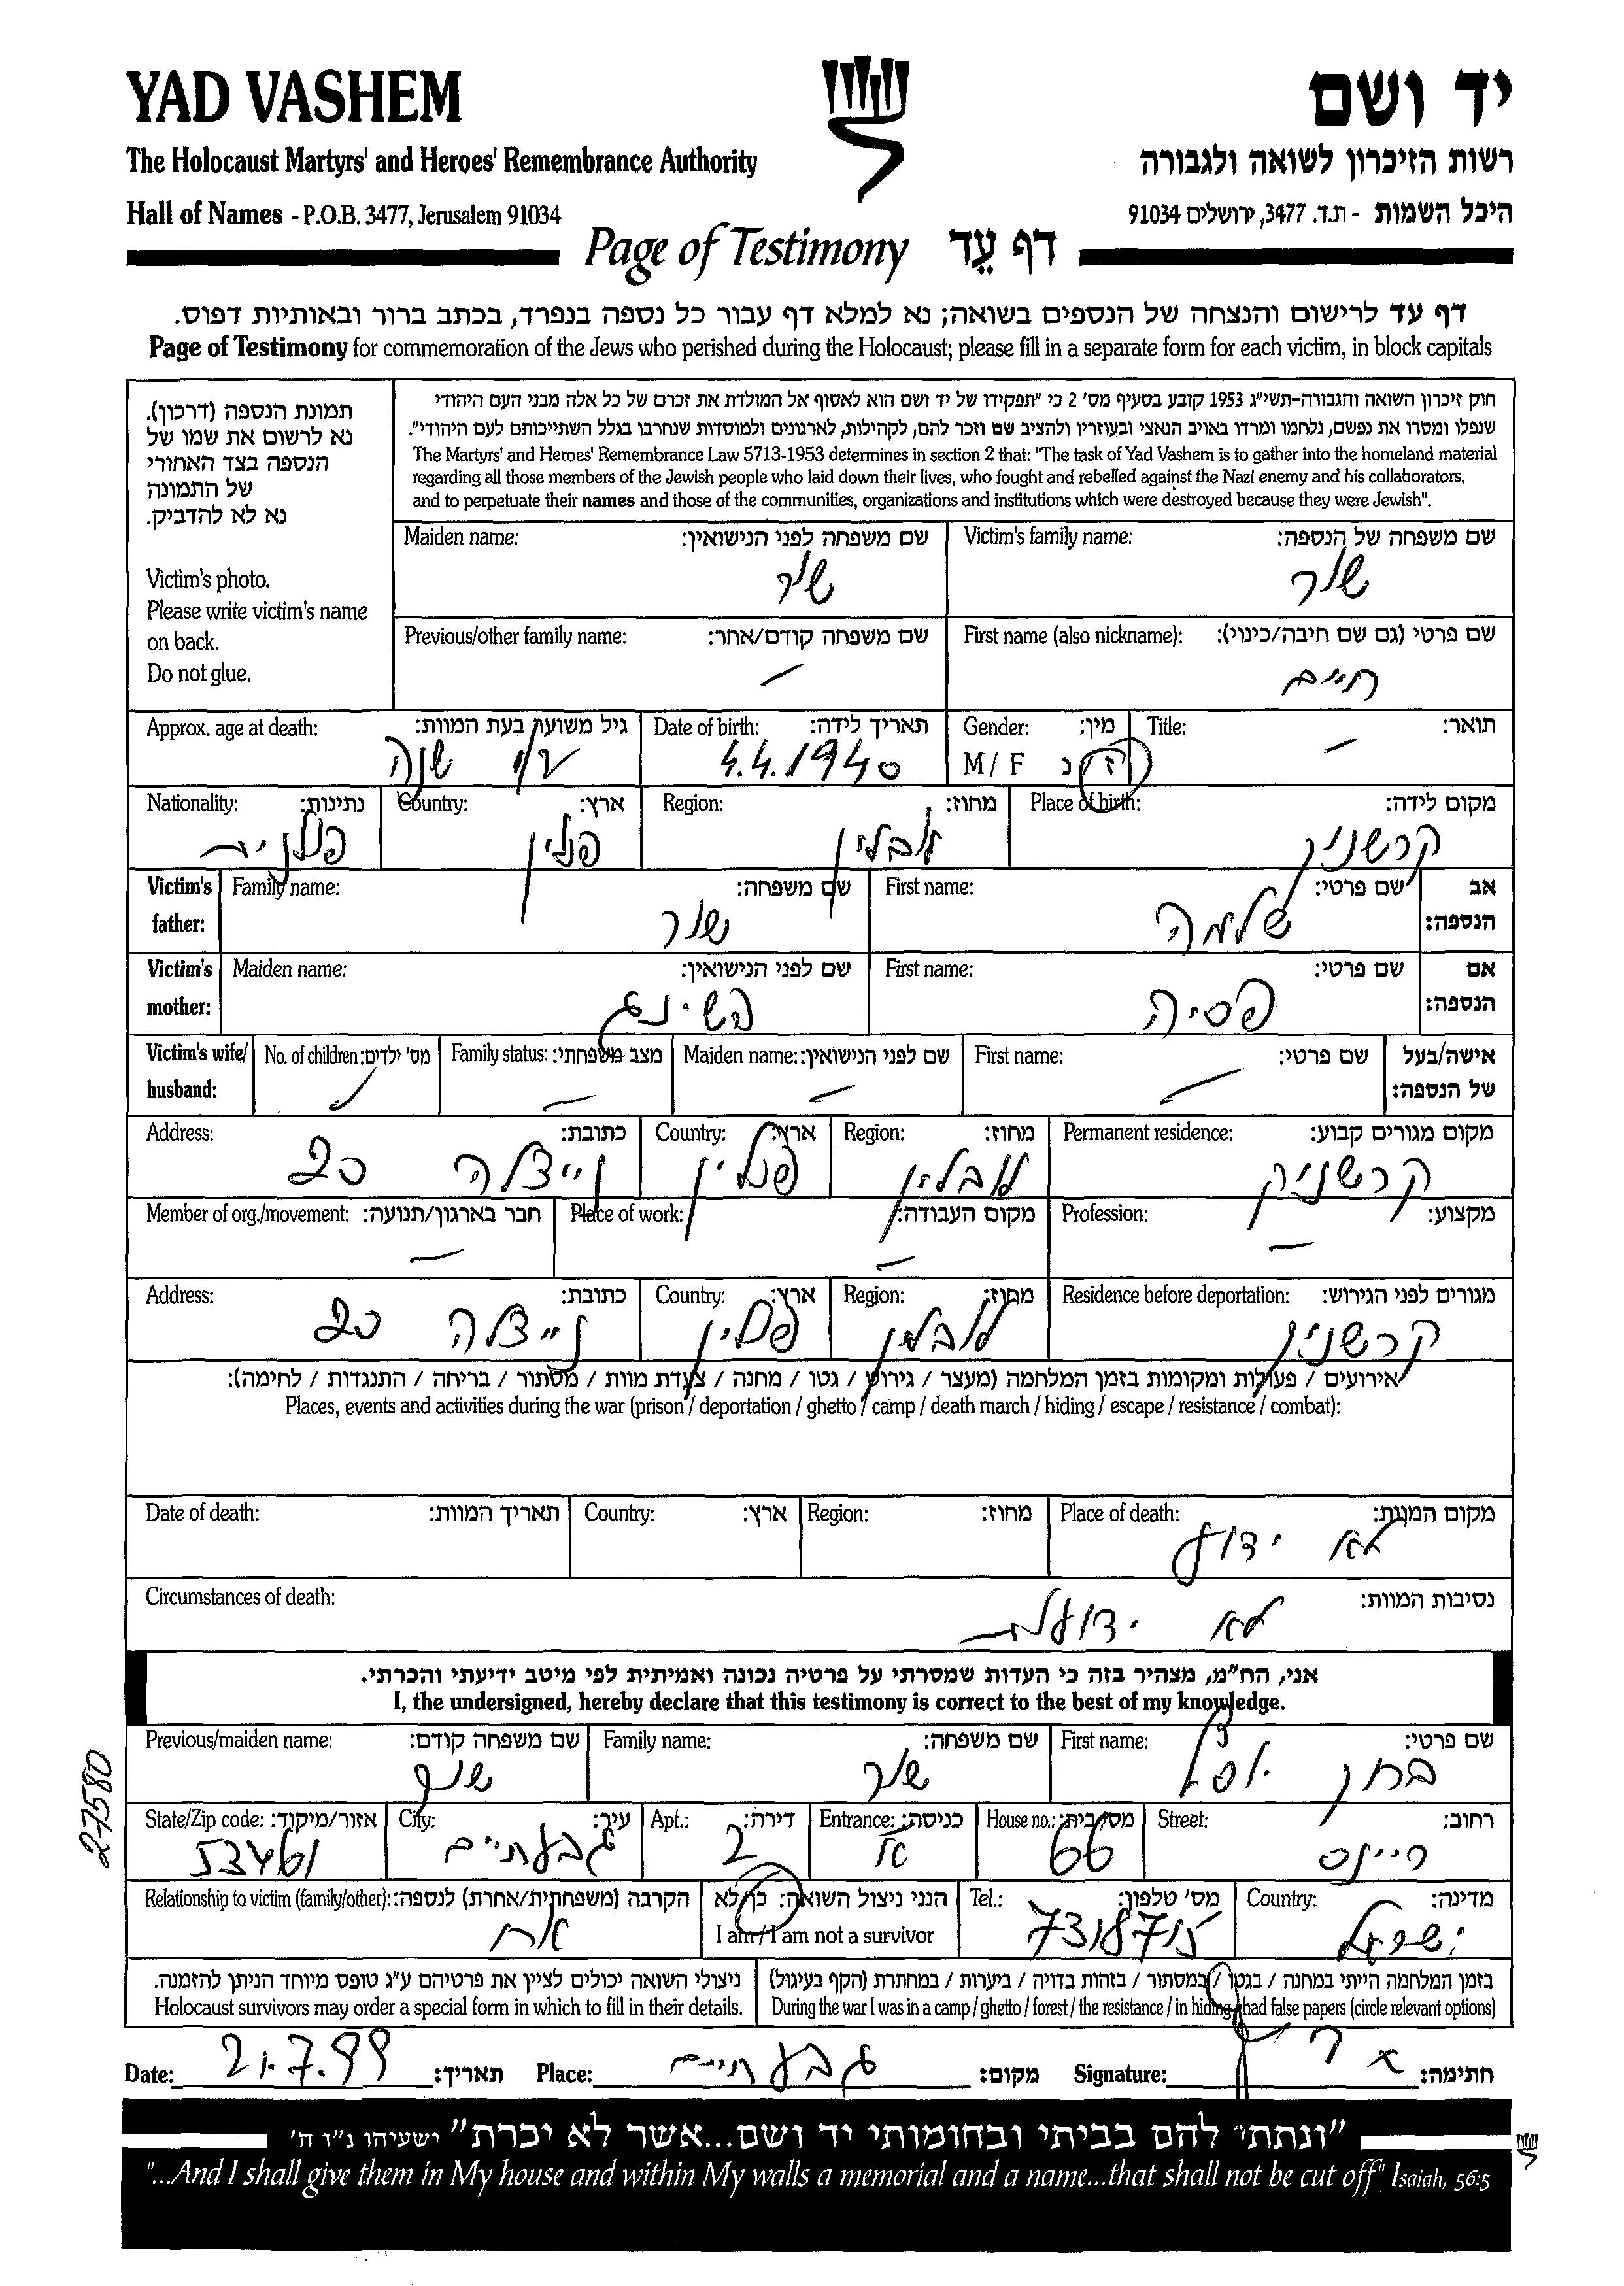 YAD VASHEM
יד ושם
The Holocaust Martyrs' and Heroes' Remembrance Authority
רשות הזיכרון לשואה ולגבורה
Hall of Names - P.O.B. 3477, Jerusalem 91034
היכל השמות - ת.ד. 3477, ירושלים 91034
Page of Testimony דף עֵד
דף עד לרישום והנצחה של הנספים בשואה; נא למלא דף עבור כל נספה בנפרד, בכתב ברור ובאותיות דפוס.
Page of Testimony for commemoration of the Jews who perished during the Holocaust; please fill in a separate form for each victim, in block capitals
תמונת הנספה (דרכון).
נא לרשום את שמו של
הנספה בצד האחורי
של התמונה
נא לא להדביק.
Victim's photo.
Please write victim's name
on back.
Do not glue.
חוק זיכרון השואה והגבורה-תשי"ג 1953 קובע בסעיף מס' 2 כי "תפקידו של יד ושם הוא לאסוף אל המולדת את זכרם של כל אלה מבני העם היהודי
שנפלו ומסרו את נפשם, נלחמו ומרדו באויב הנאצי ובעוזריו ולהציב שם וזכר להם, לקהילות, לארגונים ולמוסדות שנחרבו בגלל השתייכותם לעם היהודי".
The Martyrs' and Heroes' Remembrance Law 5713-1953 determines in section 2 that: "The task of Yad Vashem is to gather into the homeland material
regarding all those members of the Jewish people who laid down their lives, who fought and rebelled against the Nazi enemy and his collaborators,
and to perpetuate their names and those of the communities, organizations and institutions which were destroyed because they were Jewish".
Victim's family name: שם משפחה של הנספה:
שור
Maiden name: שם משפחה לפני הנישואין:
שור
First name (also nickname): שם פרטי (גם שם חיבה/כינוי):
חיים
Previous/other family name: שם משפחה קודם/אחר:
—
Title: תואר:
—
Gender: מין:
M / F ז/נ
Date of birth: תאריך לידה:
4.4.1940
Approx. age at death: גיל משוער בעת המוות:
שנה
Place of birth: מקום לידה:
קרשניק
Region: מחוז:
לובלין
Country: ארץ:
פולין
Nationality: נתינות:
פולנית
Victim's father: אב הנספה:
First name: שם פרטי:
שלמה
Family name: שם משפחה:
שור
Victim's mother: אם הנספה:
First name: שם פרטי:
פסיה
Maiden name: שם לפני הנישואין:
Victim's wife/ husband: אישה/בעל של הנספה:
First name: שם פרטי:
—
Maiden name: שם לפני הנישואין:
—
Family status: מצב משפחתי:
—
No. of children: מס' ילדים:
—
Permanent residence: מקום מגורים קבוע:
קרשניק
Region: מחוז:
לובלין
Country: ארץ:
פולין
Address: כתובת:
20
Profession: מקצוע:
—
Place of work: מקום העבודה:
—
Member of org./movement: חבר בארגון/תנועה:
—
Residence before deportation: מגורים לפני הגירוש:
קרשניק
Region: מחוז:
לובלין
Country: ארץ:
פולין
Address: כתובת:
20
אירועים / פעולות ומקומות בזמן המלחמה (מעצר / גירוש / גטו / מחנה / צעדת מוות / מסתור / בריחה / התנגדות / לחימה):
Places, events and activities during the war (prison / deportation / ghetto / camp / death march / hiding / escape / resistance / combat):
Place of death: מקום המוות:
לא ידוע
Region: מחוז:
Country: ארץ:
Date of death: תאריך המוות:
Circumstances of death: נסיבות המוות:
לא ידועות
אני, הח"מ, מצהיר בזה כי העדות שמסרתי על פרטיה נכונה ואמיתית לפי מיטב ידיעתי והכרתי.
I, the undersigned, hereby declare that this testimony is correct to the best of my knowledge.
First name: שם פרטי:
Family name: שם משפחה:
שור
Previous/maiden name: שם משפחה קודם:
Street: רחוב:
ריינס
House no.: מס' בית:
66
Entrance: כניסה:
א
Apt.: דירה:
2
City: עיר:
גבעתיים
State/Zip code: אזור/מיקוד:
53461
Country: מדינה:
ישראל
Tel.: מס' טלפון:
7318715
הנני ניצול השואה: כן/לא
I am / I am not a survivor
Relationship to victim (family/other): הקרבה (משפחתית/אחרת) לנספה:
אח
בזמן המלחמה הייתי במחנה / בגטו / במסתור / בזהות בדויה / ביערות / במחתרת (הקף בעיגול)
During the war I was in a camp / ghetto / forest / the resistance / in hiding / had false papers (circle relevant options)
ניצולי השואה יכולים לציין את פרטיהם ע"ג טופס מיוחד הניתן להזמנה.
Holocaust survivors may order a special form in which to fill in their details.
Date: 21.7.99 תאריך:
Place: גבעתיים מקום:
Signature: חתימה:
27580
"ונתתי להם בביתי ובחומותי יד ושם...אשר לא יכרת" ישעיהו נ"ו ה'
"...And I shall give them in My house and within My walls a memorial and a name...that shall not be cut off" Isaiah, 56:5